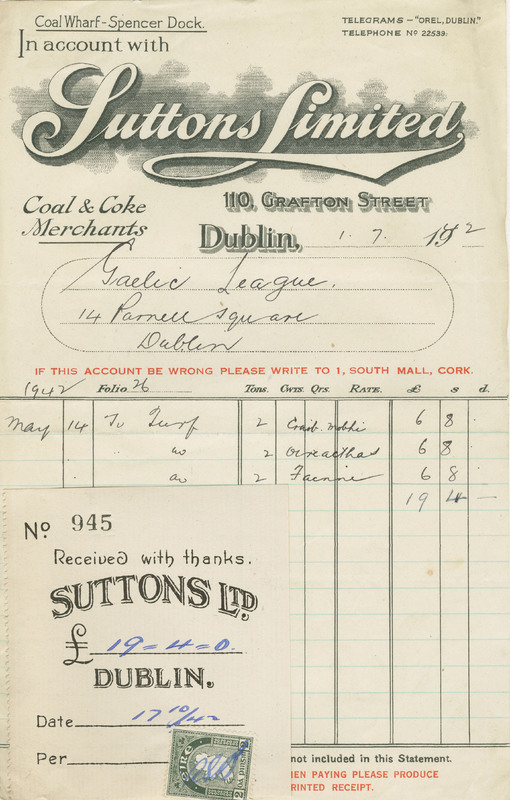 Coal Wharf-Spencer Dock.
TELEGRAMS – "OREL, DUBLIN."
TELEPHONE Nº 22539.
In account with
Suttons Limited,
Coal & Coke
Merchants
110, GRAFTON STREET
Dublin, 1. 7. 1942
Gaelic League.
14 Parnell Square
Dublin
IF THIS ACCOUNT BE WRONG PLEASE WRITE TO 1, SOUTH MALL, CORK.
1942 Folio 26 Tons. Cwts. Qrs. RATE. £ s d.
May 14 To Turf 2 Craobh Mobhi 6 8
" do 2 Oireachtas 6 8
do 2 Fainne 6 8
19 4 –
Nº 945
Received with thanks.
SUTTONS LTD.
£ 19 = 4 = 0.
DUBLIN.
Date 17 10/42
Per
EIRE
not included in this Statement.
HEN PAYING PLEASE PRODUCE
RINTED RECEIPT.